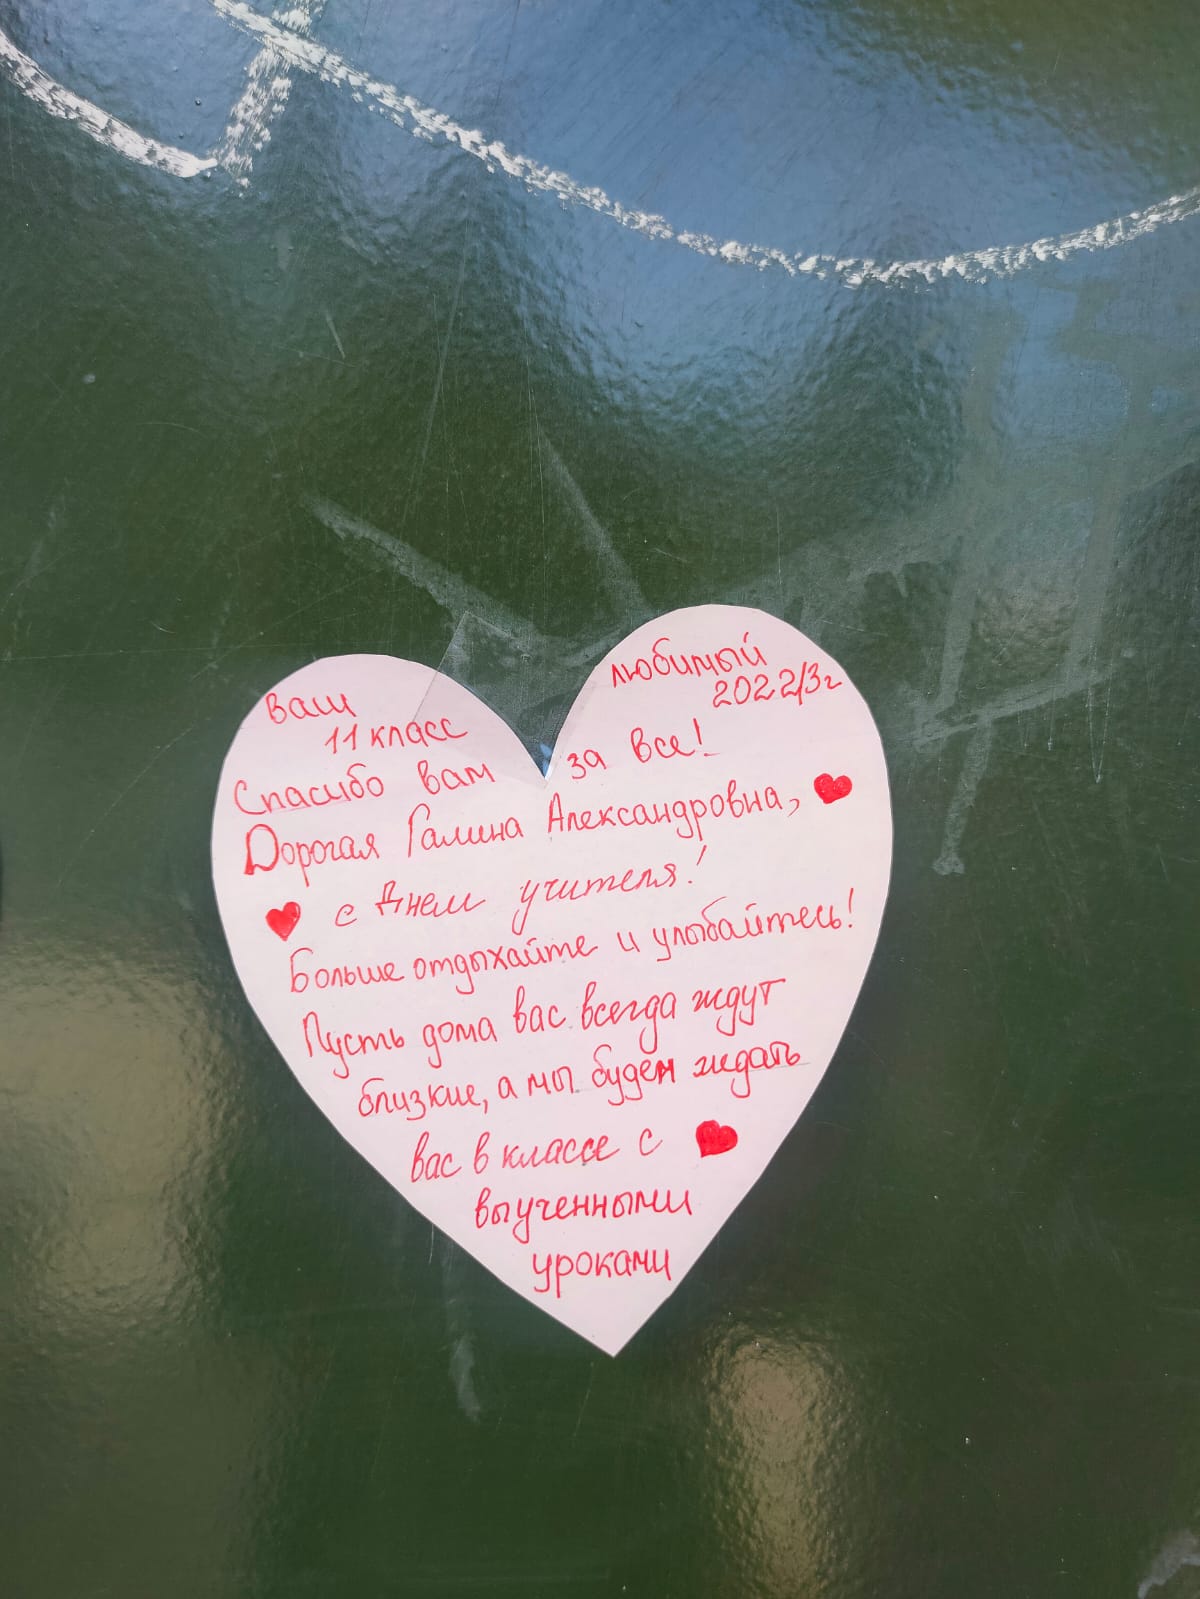 ваш любимый
11 класс 2022/3г
Спасибо вам за все!
Дорогая Галина Александровна,
с Днем учителя!
Больше отдыхайте и улыбайтесь!
Пусть дома вас всегда ждут
близкие, а мы будем ждать
вас в классе с
выученными
уроками